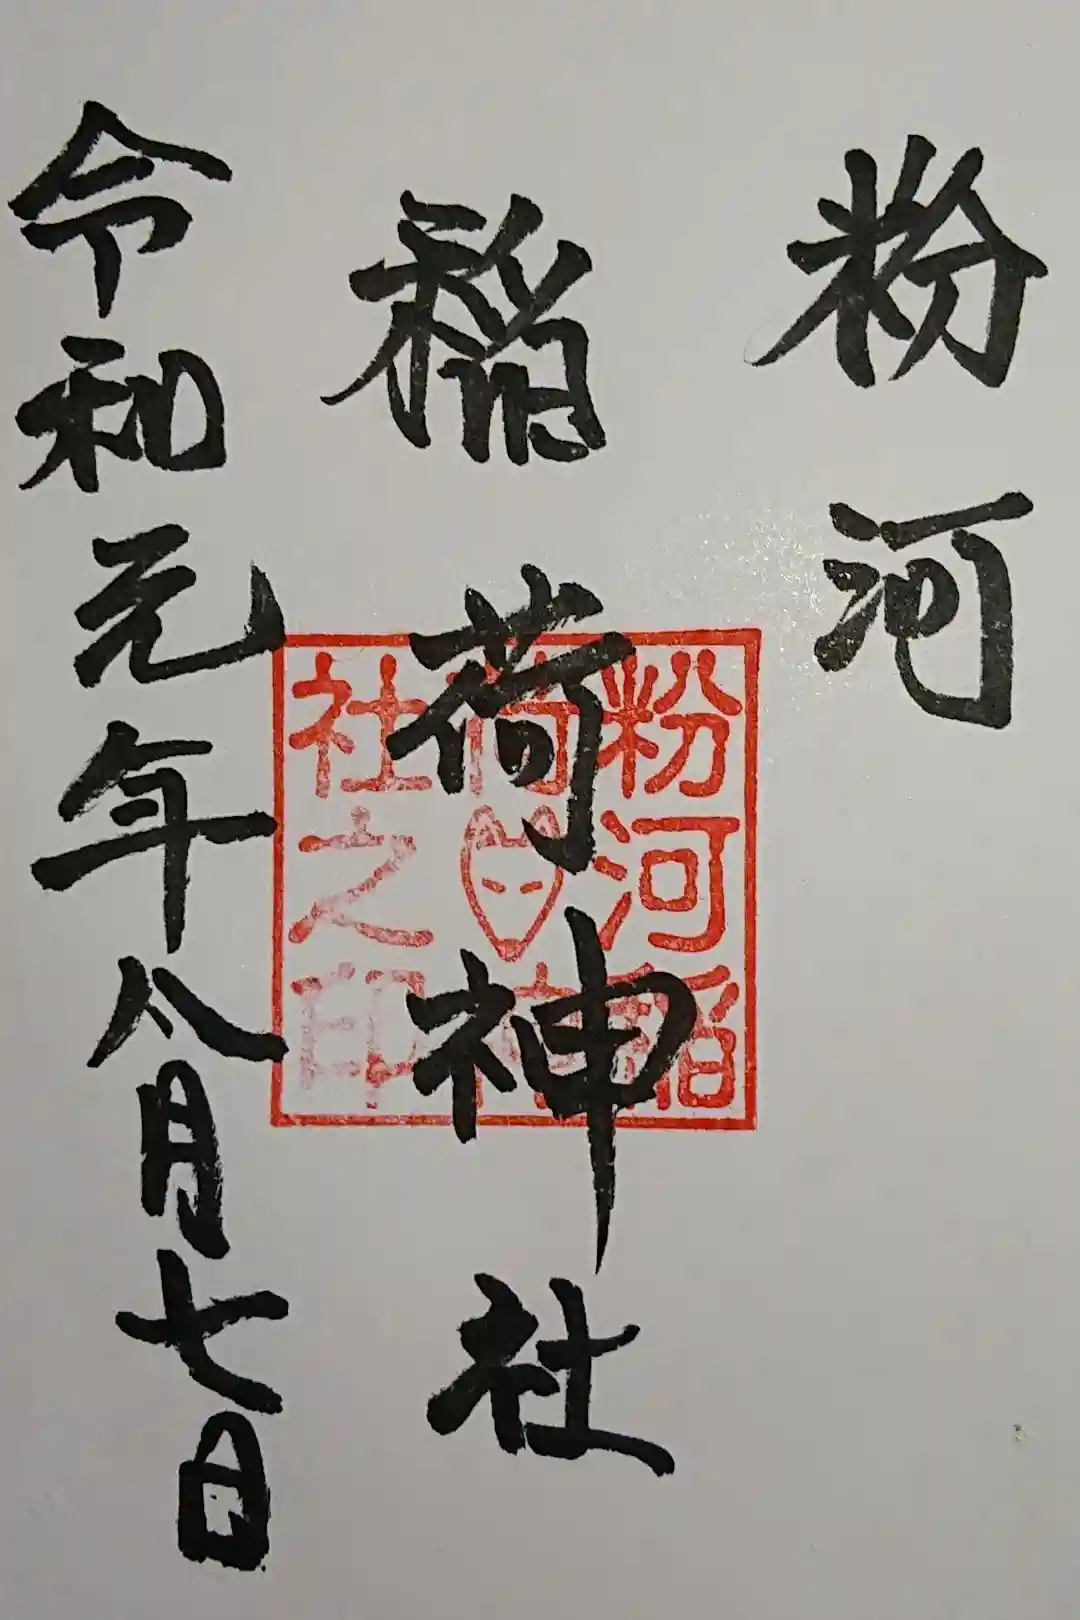 粉河
稲荷神社
令和元年八月七日
粉河稲
荷神
社之印